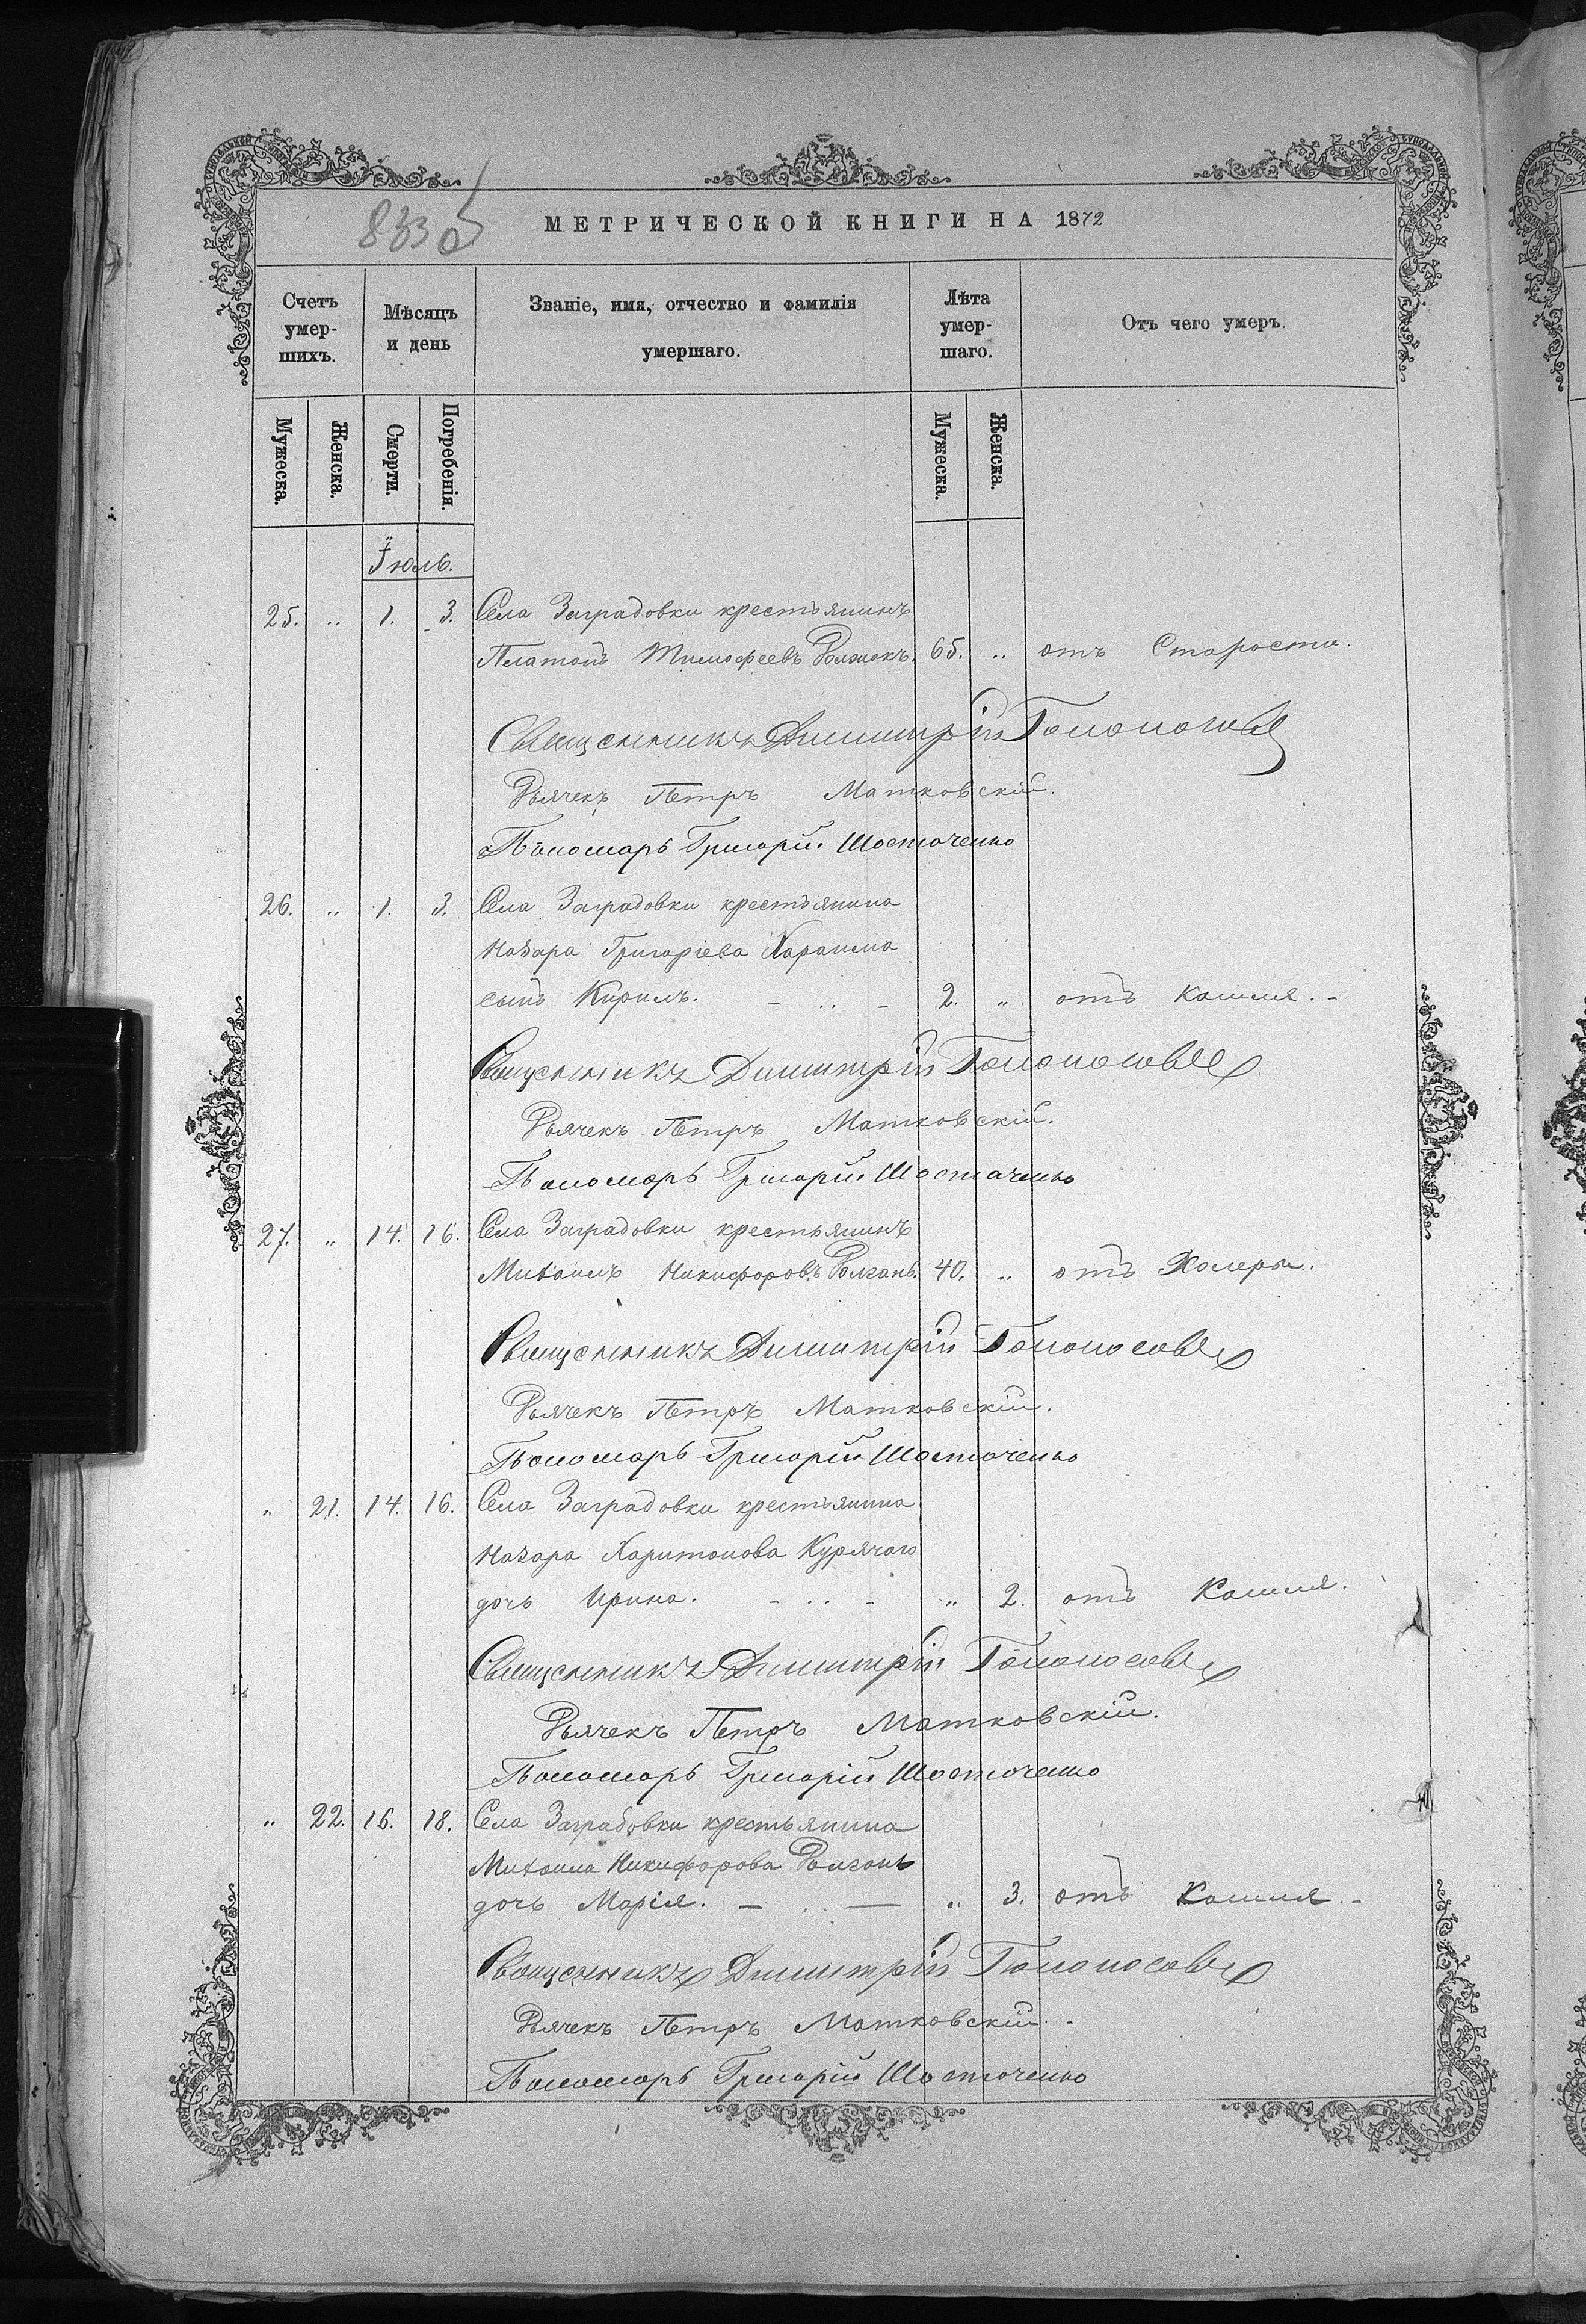 833 об
МЕТРИЧЕСКОЙ КНИГИ НА 1872
Счетъ умер-шихъ. Мѣсяцъ и день Званіе, имя, отчество и фамилія умершаго. Лѣта умер-шаго. Отъ чего умеръ.
Мужеска. Женска. Смерти. Погребенія. Мужеска. Женска.
Іюль.
25. „ 1. 3. Села Заградовки крестьянинъ
Платонъ Тимофеевъ 65. „ отъ Старости.
Священникъ Димитрій
Дьячекъ Петръ Матковскій.
Пономарь Григорій Шостаченко
26. „ 1. 3. Села Заградовки крестьянина
Назара Григоріева
сынъ Кирилъ. - „ - 2. „ отъ кашля. -
Священникъ Димитрій
Дьячекъ Петръ Матковскій.
Пономарь Григорій Шостаченко
27. „ 14. 16. Села Заградовки крестьянинъ
Михаилъ Никифоровъ Долганъ. 40. „ отъ Холеры.
Священникъ Димитрій
Дьячекъ Петръ Матковскій.
Пономарь Григорій Шостаченко
„ 21. 14. 16. Села Заградовки крестьянина
Назара Харитонова Курячаго
дочь Ирина. - „ - „ 2. отъ Кашля.
Священникъ Димитрій
Дьячекъ Петръ Матковскій.
Пономарь Григорій Шостаченко
„ 22. 16. 18. Села Заградовки крестьянина
Михаила Никифорова Долганъ
дочь Марія. - „ 3. отъ Кашля -
Священникъ Димитрій
Дьячекъ Петръ Матковскій. -
Пономарь Григорій Шостаченко